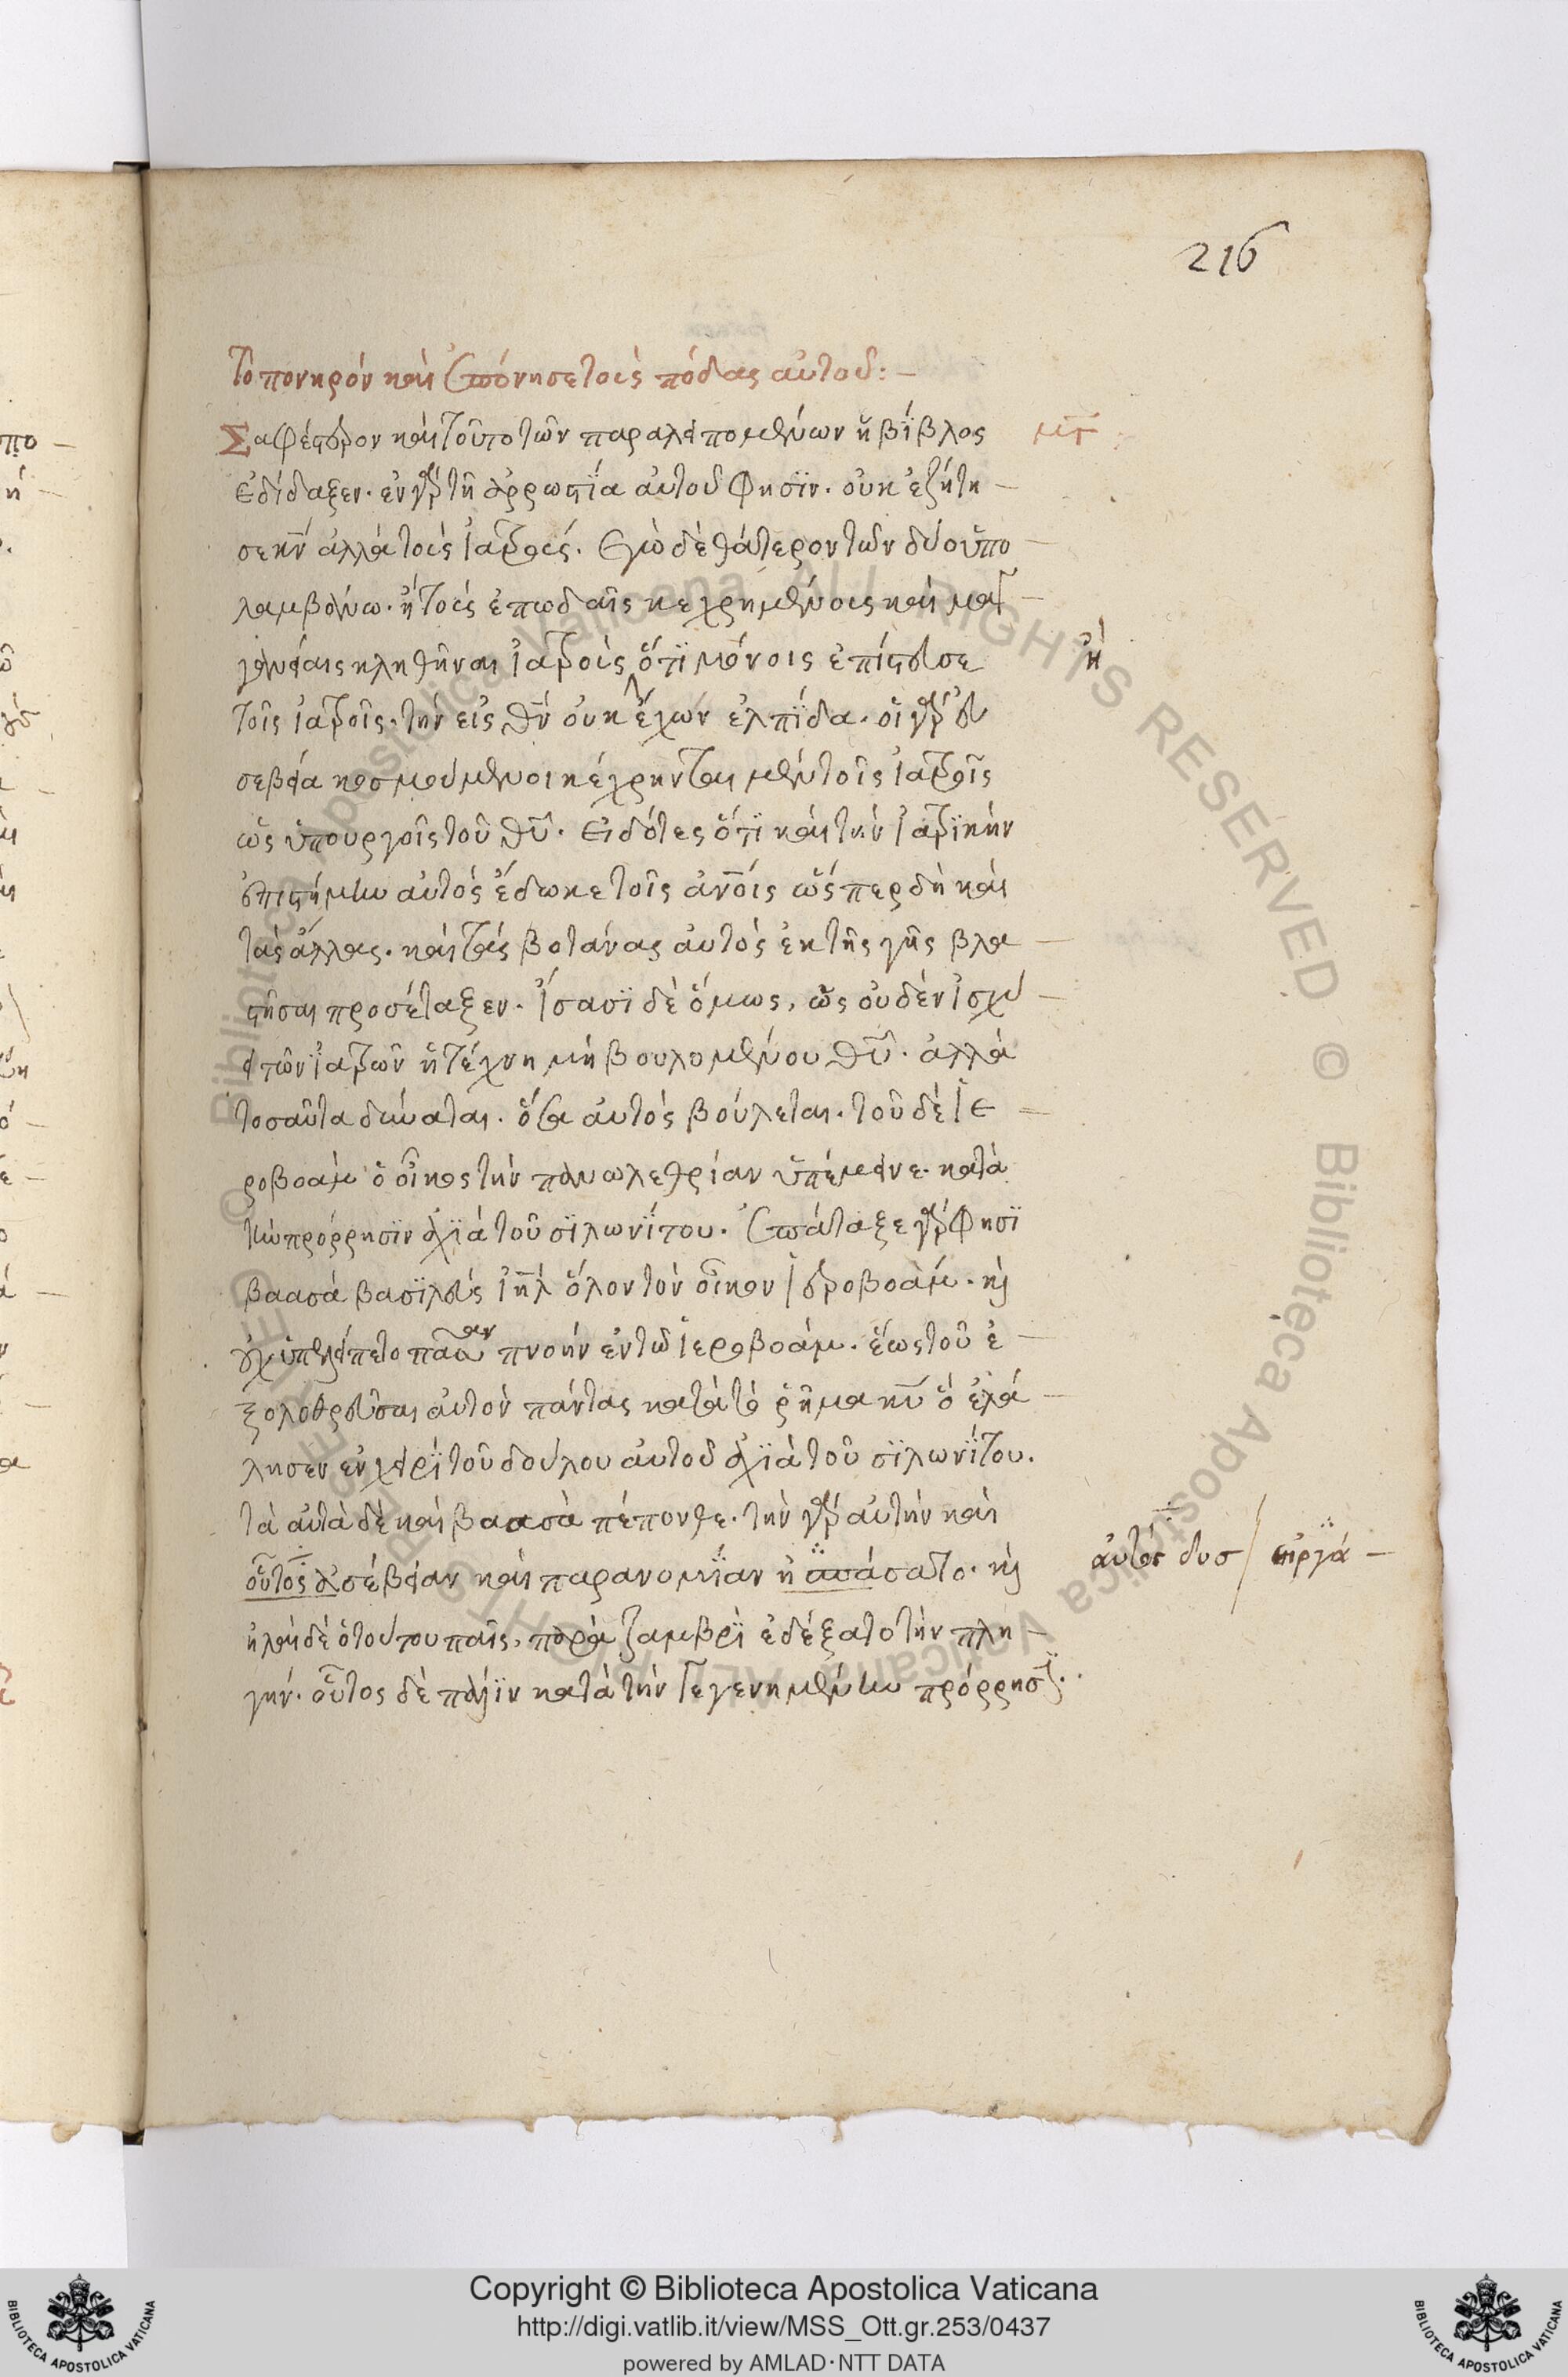 216
τὸ πονηρὸν καὶ ἐπόνησε τοὺς πόδας αὐτοῦ:–
Σαφέστερον καὶ τοῦτο τῶν παραλειπομένων ἡ βίβλος μγ
ἐδίδαξεν· ἐν γὰρ τῇ ἀρρωστία αὐτοῦ φησϊν· οὐκ ἐζήτη
σε κν̄ ἀλλὰ τοὺς ἰατρούς. Ἐγὼ δὲ θάτερον τῶν δύο ὑπο
λαμβάνω· ἢ τοὺς ἐπωδαῖς κεχρημένους καὶ μαγ
γανείαις κληθῆναι ἰατροὺς ὅτϊ μόνοις ἐπίστευσε ἢ
τοῖς ἰατροῖς, τὴν εἰς θν̄ οὐκ ἔχων ἐλπΐδα· οἱ γὰρ εὐ
σεβεία κοσμούμενοι κέχρηνται μὲν τοῖς ἰατροῖς
ὡς ὑπουργοῖς τοῦ θῡ· εἰδότες ὅτϊ καὶ τὴν ἰατρϊκὴν
ἐπιστήμην αὐτὸς ἔδωκε τοῖς ἀνοῖς ὥσπερ δὴ καὶ
τὰς ἄλλας· καὶ τὰς βοτάνας αὐτὸς ἐκ τῆς γῆς βλα
στῆσαι προσέταξεν· ἴσασϊ δὲ ὅμως, ὡς οὐδὲν ἰσχύ
ει τῶν ἰατρῶν ἡ τέχνη μὴ βουλομένου θῡ· ἀλλὰ
τοσαῦτα δύναται· ὅσα αὐτὸς βούλεται· τοῦ δὲ ἱε
ροβοὰμ ὁ οἶκος τὴν πανωλεθρίαν ὑπέμεινε· κατὰ
τὴν πρόρρησϊν ἀχϊὰ τοῦ σϊλωνΐτου· ἐπάταξε γὰρ φησϊ
βαασὰ βασϊλεὺς ἰηλ ὅλον τὸν οἶκον ἱεροβοάμ· κὶ
οὐχ ὑπελείπετο πᾶσαν πνοὴν ἐν τῶ ἱεροβοάμ· ἕως τοῦ ἐ
ξολοθρεῦσαι αὐτὸν πάντας κατὰ τὸ ῥῆμα κῡ ὃ ἐλά
λησεν ἐν χειρῒ τοῦ δούλου αὐτοῦ ἀχϊὰ τοῦ σϊλωνΐτου.
τὰ αὐτὰ δὲ καὶ βαασὰ πέπονθε· τὴν γὰρ αὐτὴν καὶ
οὗτος ἀσέβειαν καὶ παρανομΐαν ἠσπάσατο· κὶ αὐτὸς δυσ / εἰργά
ἠλὰ δὲ ὁ τούτου παῖς, παρὰ ζαμβρῒ ἐδέξατο τὴν πλη
γήν· οὗτος δὲ πάλϊν κατὰ τὴν γεγενημένην πρόρρησϊν·
Copyright © Biblioteca Apostolica Vaticana
http://digi.vatlib.it/view/MSS_Ott.gr.253/0437
powered by AMLAD·NTT DATA